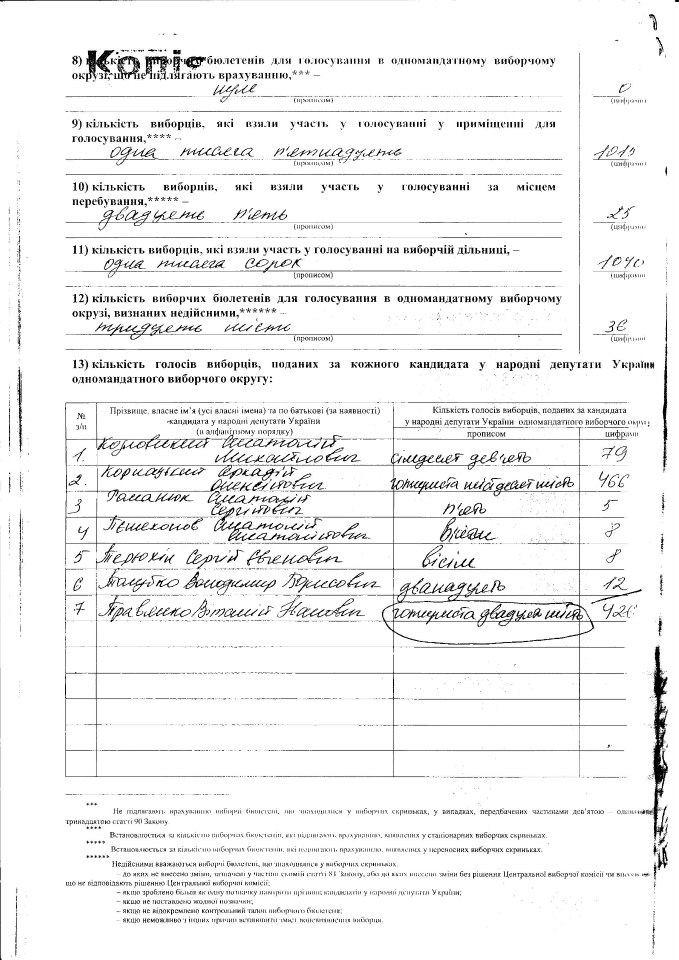 Копіє
8) кількість виборчих бюлетенів для голосування в одномандатному виборчому
окрузі, що не підлягають врахуванню,*** –
нуль 0
(прописом) (цифрами)
9) кількість виборців, які взяли участь у голосуванні у приміщенні для
голосування,**** –
одна тисяча п'ятнадцять 1015
(прописом) (цифрами)
10) кількість виборців, які взяли участь у голосуванні за місцем
перебування,***** –
двадцять п'ять 25
(прописом) (цифрами)
11) кількість виборців, які взяли участь у голосуванні на виборчій дільниці, –
одна тисяча сорок 1040
(прописом) (цифрами)
12) кількість виборчих бюлетенів для голосування в одномандатному виборчому
окрузі, визнаних недійсними,****** –
тридцять шість 36
(прописом) (цифрами)
13) кількість голосів виборців, поданих за кожного кандидата у народні депутати України
одномандатного виборчого округу:
№ з/п
Прізвище, власне ім'я (усі власні імена) та по батькові (за наявності)
-кандидата у народні депутати України
(в алфавітному порядку)
Кількість голосів виборців, поданих за кандидата
у народні депутати України одномандатного виборчого округу
прописом цифрами
1. Анатолій
Михайлович сімдесят дев'ять 79
2. Корнацький Аркадій
Олексійович чотириста шістдесят шість 466
3 Романюк Анатолій
Сергійович п'ять 5
4 Пєшехонов Анатолій
Анатолійович вісім 8
5 Терюхін Сергій Євгенович вісім 8
6 Володимир Борисович дванадцять 12
7 Травянко Віталій Іванович чотириста двадцять шість 426
***
Не підлягають врахуванню виборчі бюлетені, що знаходилися у виборчих скриньках, у випадках, передбачених частинами дев'ятою –
тринадцятою статті 90 Закону.
****
Встановлюється за кількістю виборчих бюлетенів, які підлягають врахуванню, виявлених у стаціонарних виборчих скриньках.
*****
Встановлюється за кількістю виборчих бюлетенів, які підлягають врахуванню, виявлених у переносних виборчих скриньках.
******
Недійсними вважаються виборчі бюлетені, що знаходилися у виборчих скриньках:
– до яких не внесено зміни, зазначені у частині сьомій статті 81 Закону, або до яких внесено зміни без рішення Центральної виборчої комісії чи внесено
що не відповідають рішенню Центральної виборчої комісії;
– якщо зроблено більш як одну позначку навпроти прізвищ кандидатів у народні депутати України;
– якщо не поставлено жодної позначки;
– якщо не відокремлено контрольний талон виборчого бюлетеня;
– якщо неможливо з інших причин встановити зміст волевиявлення виборця.